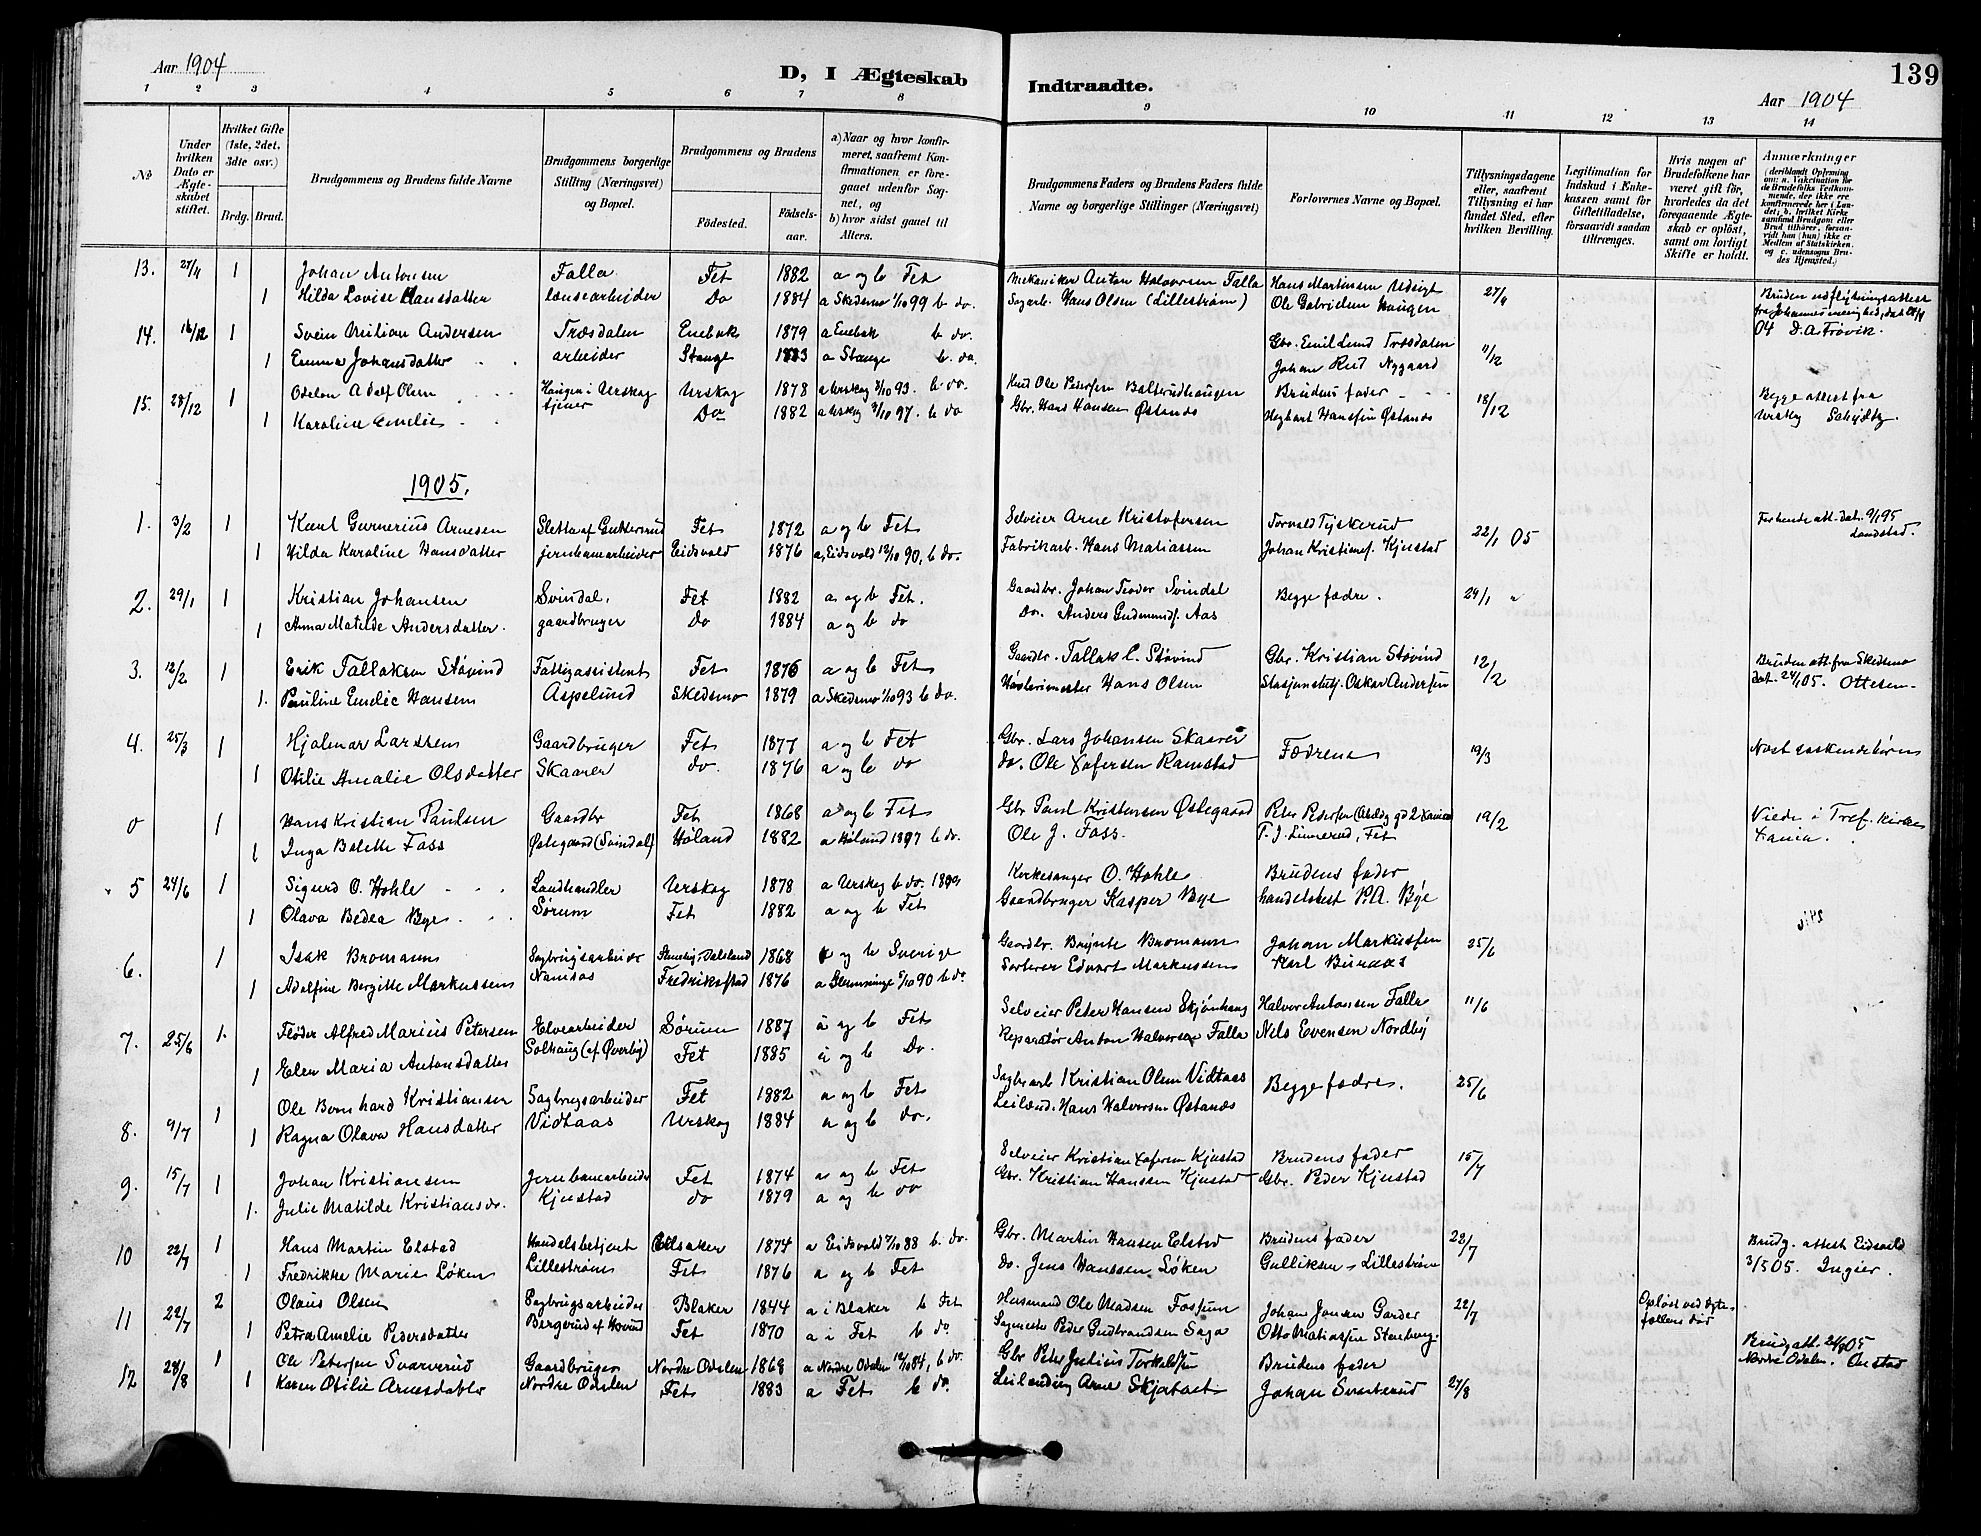 Aar 1904
D, I Ægteskab
Indtraadte.
139
Aar 1904
1 2 3 4 5 6 7 8 9 10 11 12 13 14
No
Under hvilken Dato er Ægteskabet stiftet.
Hvilket Gifte (1ste, 2det, 3die osv.)
Brdg. Brud.
Brudgommens og Brudens fulde Navne
Brudgommens borgerlige Stilling (Næringsvei) og Bopæl.
Brudgommens og Brudens
Födested. Födselsaar.
a) Naar og hvor konfirmeret, saafremt Konfirmationen er foregaaet udenfor Sognet, og
b) hvor sidst gaaet til Alters.
Brudgommens Faders og Brudens Faders fulde Navne og borgerlige Stillinger (Næringsvei)
Forlovernes Navne og Bopæl.
Tillysningsdagene eller, saafremt Tillysning ei har fundet Sted, efter hvilken Bevilling.
Legitimation for Indskud i Enkekassen samt for Giftetilladelse, forsaavidt saadan tiltrænges.
Hvis nogen af Brudefolkene har været gift för, hvorledes da det foregaaende Ægteskab er oplöst, samt om lovligt Skifte er holdt.
Anmærkninger
13. 27/4 1 Johan Antonsen Falla Fet 1882 a og b Fet Mekaniker Anton Halvorsen Falla Hans Martinsen 27/4
1 Hilda Lovise Hansdatter lænsearbeider Do 1884 a Skedsmo 1/10 99 b do. Sagarb. Hans Olsen (Lillestrøm) Ole Gabrielsen Haugen Bruden udflytningsattest
14. 16/12 1 Svein Andersen Træsdalen Enebak 1879 a Enebak b do. Gbr. Emil Lund Træsdalen 11/12 04
1 Emma Johansdatter arbeider Stange 1883 a Stange b. do. Johan Rud Nygaard
15. 28/12 1 Odelon Adolf Olsen Haugen i Urskog Urskog 1878 a Urskog 93. b do. Ole Pedersen Balterudhaugen Brudens fader 18/12 Begge attest fra
1 Karoline Emelie tjener Do 1882 a Urskog 97. b do Gbr. Hans Hansen Østanes Hansen Østanes Urskog
1905.
1. 3/2 1 Karl Gunerius Arnesen Sletta af Gulteruud Fet 1872 a og b Fet Selveier Arne Kristofersen Torvald Tyskerud 22/1 05
1 Hilda Karoline Hansdatter jernbanearbeider Eidsvold 1876 a, Eidsvold 12/10 90, b do. Fabrikarb. Hans Matiassen Johan Kristiansf. Kjustad Landstad.
2. 29/1 1 Kristian Johansen Svindal, Fet 1882 a og b Fet. Gaardbr. Johan Svindal Begge fædre. 24/1 "
1 Anna Matilde Andersdatter. gaardbruger Do 1884 a og b do Do. Anders Gudmundf. Aas
3. 12/2 1 Erik Tallaksen Støvind Fattigassistent Fet 1876 a og b Fet Gaardbr. Tallak C. Støvind Gbr. Kristian Støvind 12/2 Bruden att. fra Skedsmo
1. Pauline Emelie Hansen Aspelund Skedsmo 1879 a Skedsmo 1/10 93 b do. Hans Olsen Oskar Andersen dat. 24/1 05. Ottesen
4. 25/3 1 Hjalmar Larssen Gaardbruger Fet 1877 a og b Fet Gbr. Lars Johansen Skaarer Fædrene 19/3
1 Otilie Amalie Olsdatter Skaarer do. 1876 a og b do do. Ole Xofersen Ramstad
0 1 Hans Kristian Paulsen Gaardbr Fet 1868 a og b Fet Gbr Paul Kristensen Østegaard Peter Pedersen 19/2 Viede i Tref. kirke
1 Inga Bolette Foss Østegaard (Svindal) Høland 1882 a Høland 1897 b do. Ole J. Foss. T. J. Linnerud, Fet Xania.
5 24/6 1 Sigurd O. Hohle Landhandler Urskog 1878 a Urskog b do. Kirkesanger O. Hohle Brudens fader
1 Olava Bedea Bye Sørum Fet 1882 a og b Fet Gaardbruger Kasper Bye handelsbest P.A. Bye
6. 1 Isak Bromann Sagbrugsarbeider 1868 a og b Sverige Gaardbr. Brynte Bromann Johan Markussen 25/6
1 Adolfine Bergitte Markussen Namsos Fredriksstad 1876 a Glemminge 90 b do Sorterer Edvart Markussen Karl Buraas
7. 25/6 1. Fløder Alfred Marius Petersen Elvearbeider Sørum 1887 a og b Fet Selveier Peter Hansen Skjønhaug Halvor Antonsen Falla 11/6
1 Elen Maria Antonsdatter Solhaug (af Øverby) Fet 1885 a og b Do. Reparatør Anton Halvorsen Falla Nels Evensen Nordby
8. 9/7 1 Ole Bernhard Kristiansen Sagbrugsarbeider Fet 1882 a og b Fet Sagbr.arb Kristian Olsen Vidtaas Begge fædre. 25/6
1 Ragna Olava Hansdatter Vidtaas Urskog 1884 a og b do. Leilænd. Hans Halvorsen Østanes
9. 15/7 1 Johan Kristiansen Jernbanearbeider Fet 1874 a og b Fet Selveier Kristian Xofersen Kjustad Brudens fader 15/7
1. Julie Matilde Kristiansdr. Kjustad do 1879 a og b do Gbr. Kristian Hanssen Kjustad Gbr. Peder Kjustad
10 22/7 1 Hans Martin Elstad Handelsbetjent Ullsaker 1874 a Eidsvold 88 b. do. Gbr. Martin Hansen Elstad Brudens fader 23/7 Brudg. attest Eidsvold
1 Fredrikke Marie Løken Lillestrøm Fet 1876 a og b Fet do. Jens Hanssen Løken Gulliksen, Lillestrøm 3/5 05. Ingier.
11 22/7 2 Olaus Olsen Sagbrugsarbeider Blaker 1844 a i Blaker b Fet Husmand Ole Madsen Fossum Johan Jonsen Garder 22/7 Opløst ved ægtefællens død
1 Petra Amelie Pedersdatter Bergerud af Hovind Fet 1870 a i Fet b do Peder Gudbrandsen Saga Otto Matiassen Stenberg
12 28/8 1 Ole Petersen Svarverud Gaardbruger Nordre Odalen 1868 a Nordre Odalen 12/10 84, b do. Gbr Peter Julius Torkelsen Brudens fader 27/8 Brudg att. 05
1 Karen Otilie Arnesdatter Nordre Odalen Fet 1883 a Fet b do. Leilænding Arne Skjatvet Johan Svarterud Nordre Odalen. Onstad